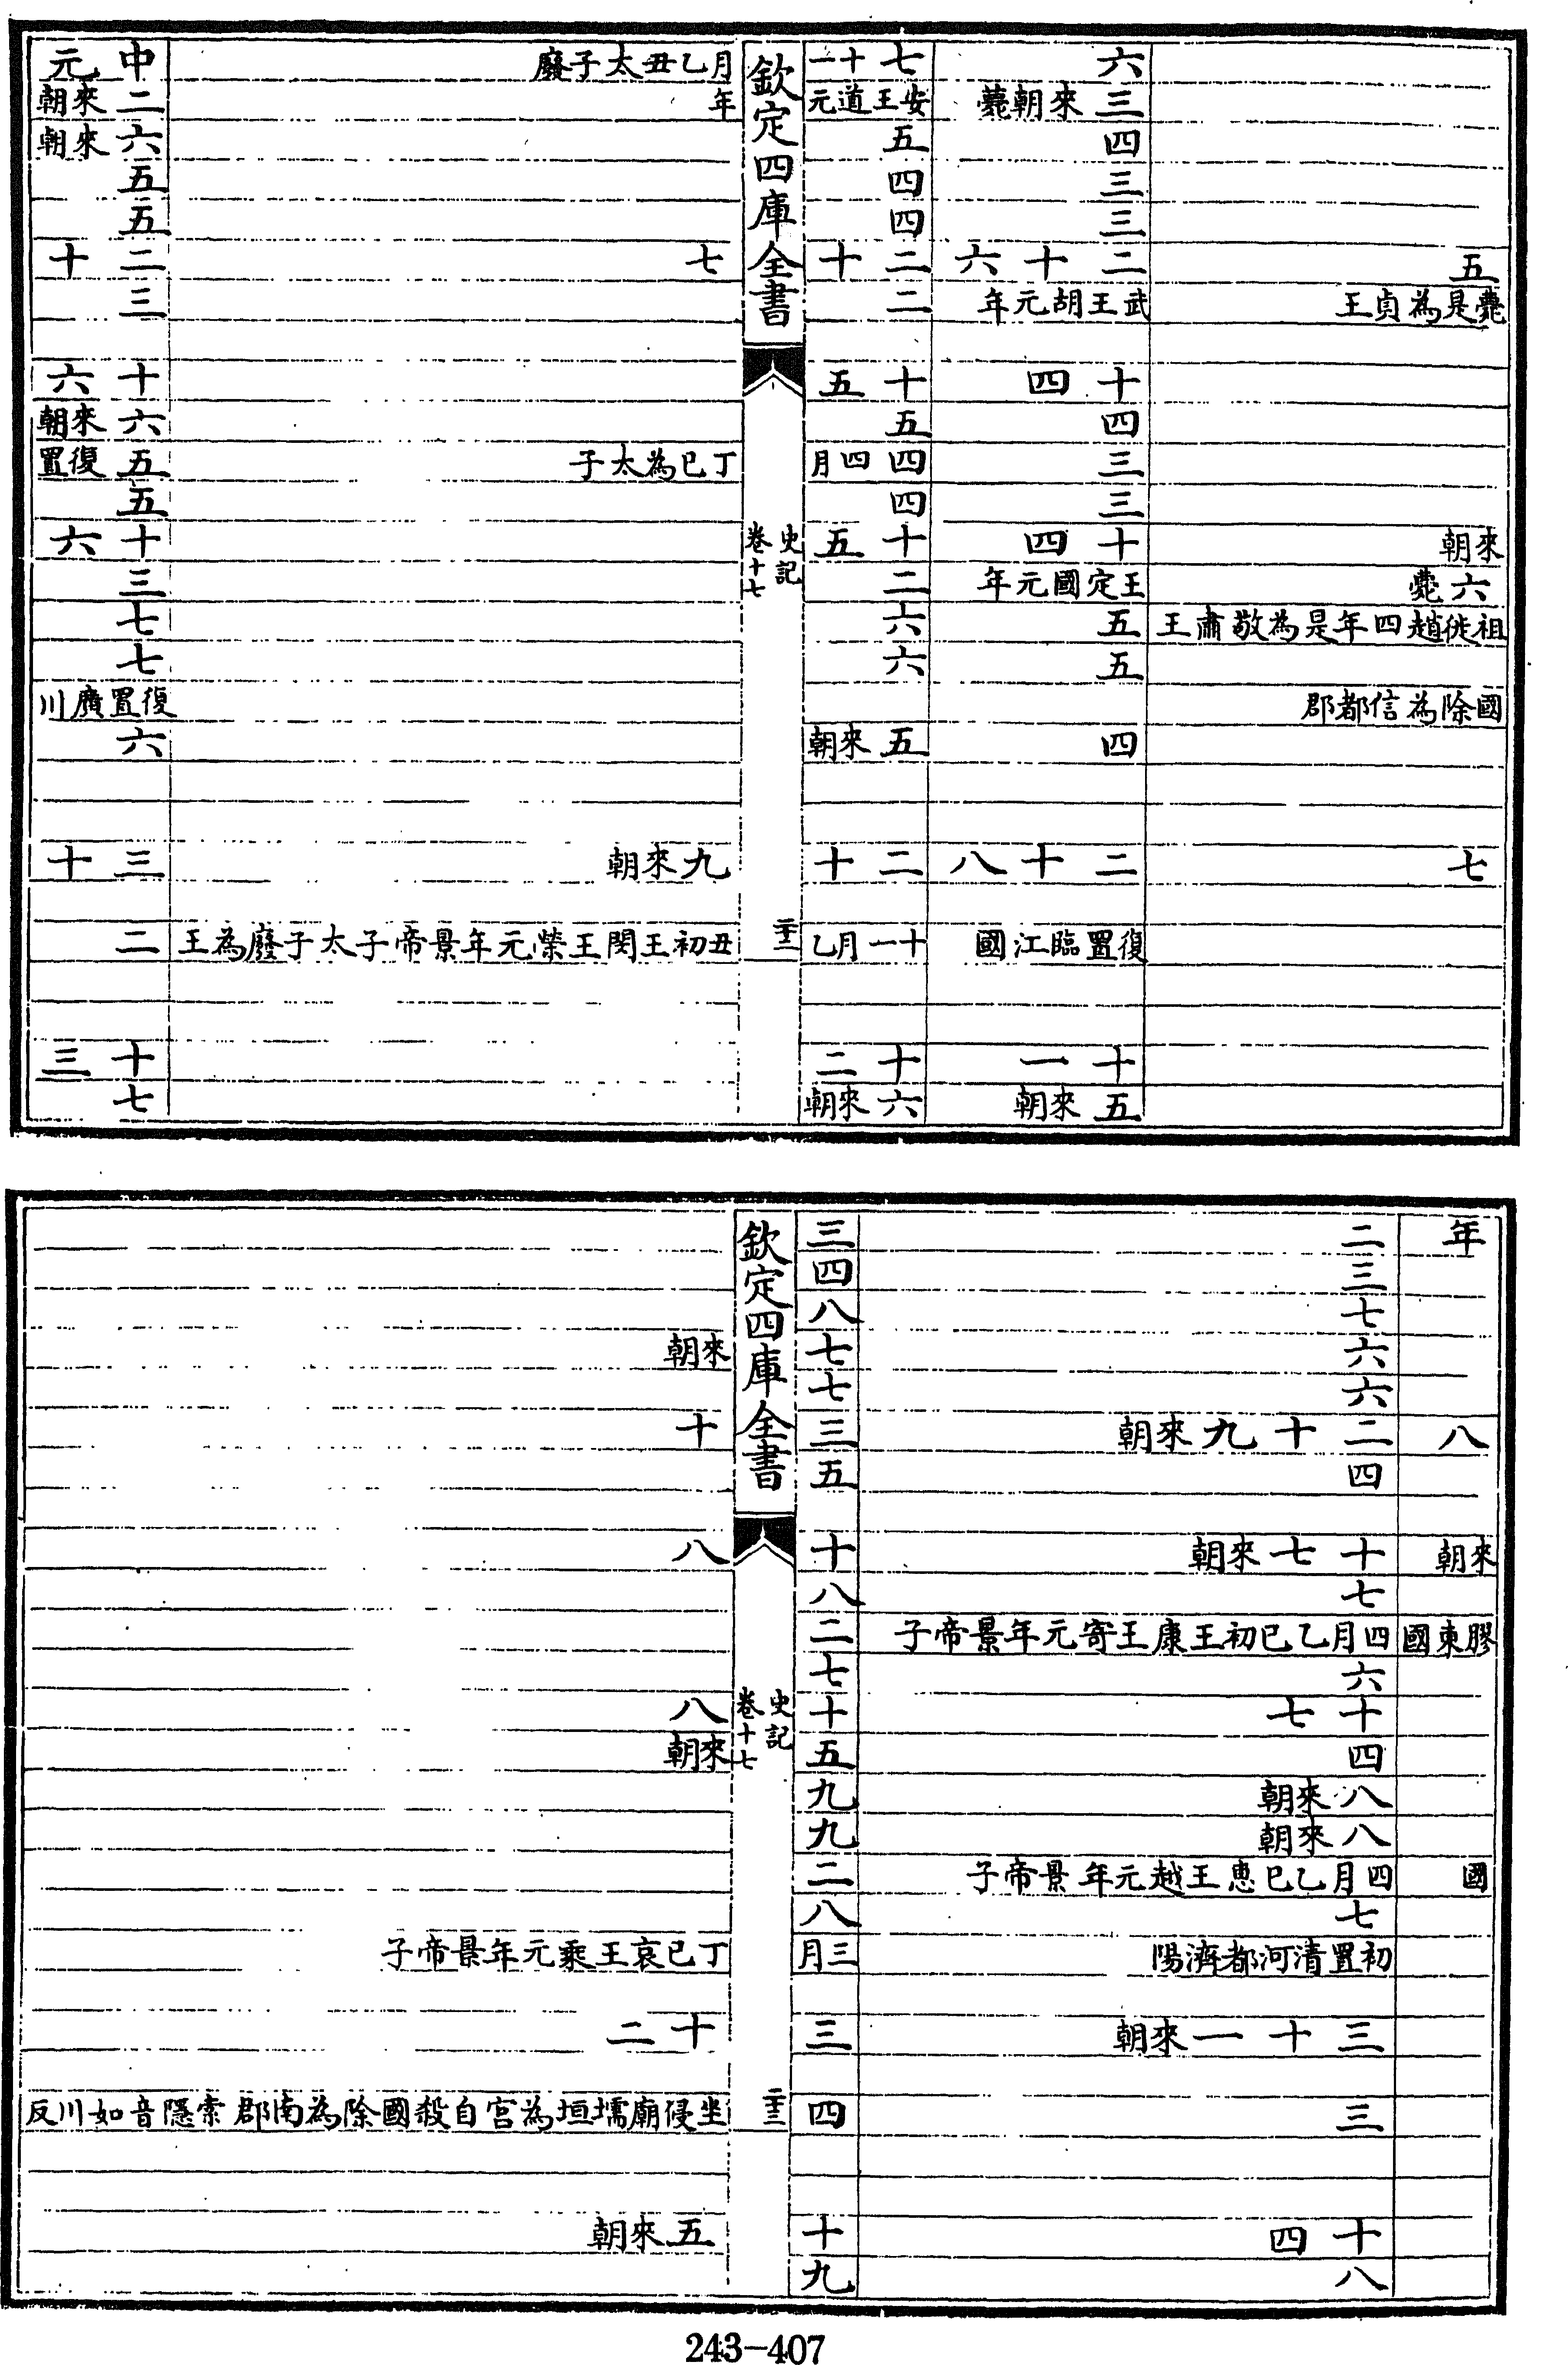 五
薨是為貞王
來朝
六薨
祖徙趙四年是為敬肅王
國除為信都郡
七
六
三來朝薨
四
三
三
二十六
武王胡元年
十四
四
三
三
十四
王定國元年
五
五
四
二十八
復置臨江國
十一
五來朝
七十一
安王道元
五
四
四
二十
二
十五
五
四四月
四
十五
二
六
六
五來朝
二十
十一月乙
十二
六來朝
欽定四庫全書
史記
卷十七
二十二
月乙丑太子廢
年
七
丁巳為太子
九來朝
丑初王閔王榮元年景帝子太子廢為王
中元
二來朝
六來朝
五
五
二十
三
十六
六來朝
五復置
五
十六
三
七
七
復置廣川
六
三十
二
十三
七
年
八
來朝
膠東國
國
二
三
七
六
六
二十九來朝
四
十七來朝
七
四月乙巳初王康王寄元年景帝子
六
十七
四
八來朝
八來朝
四月乙巳惠王越元年景帝子
七
初置清河都濟陽
三十一來朝
三
十四
八
三
四
八
七
七
三
五
十
八
二
七
十
五
九
九
二
八
三月
三
四
十
九
欽定四庫全書
史記
卷十七
二十三
來朝
十
八
八
來朝
丁巳哀王乘元年景帝子
十二
坐侵廟壖垣為宮自殺國除為南郡索隱音如川反
五來朝
243-407